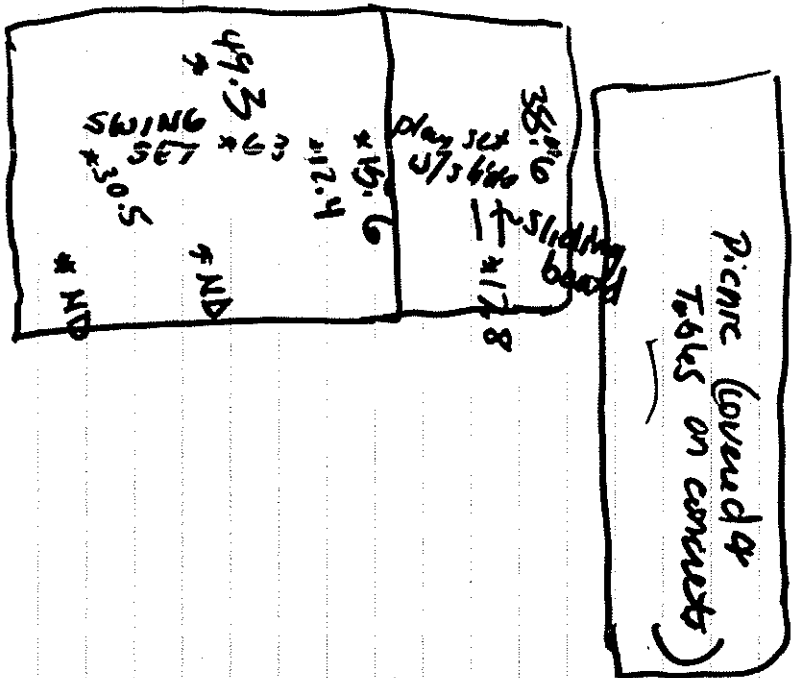 49.3
*
SWING
SET
*63
*30.5
*12.4
*15.6
* ND
* ND
play set
w/slide
38.6
*
sliding
board
*17.8
Picnic (covered &
Tables on concrete)